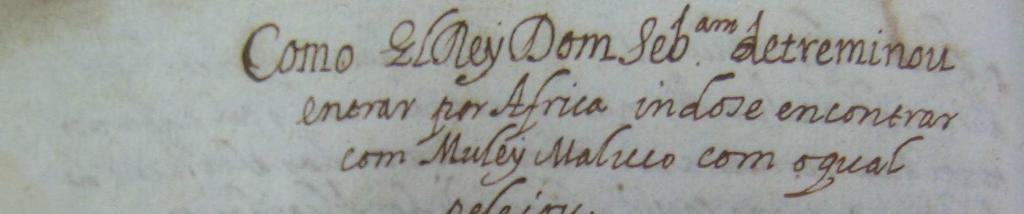 Como ElRey Dom Seb.am detreminou
entrar por Africa indose encontrar
com Muley Maluco com oqual
peleiou.